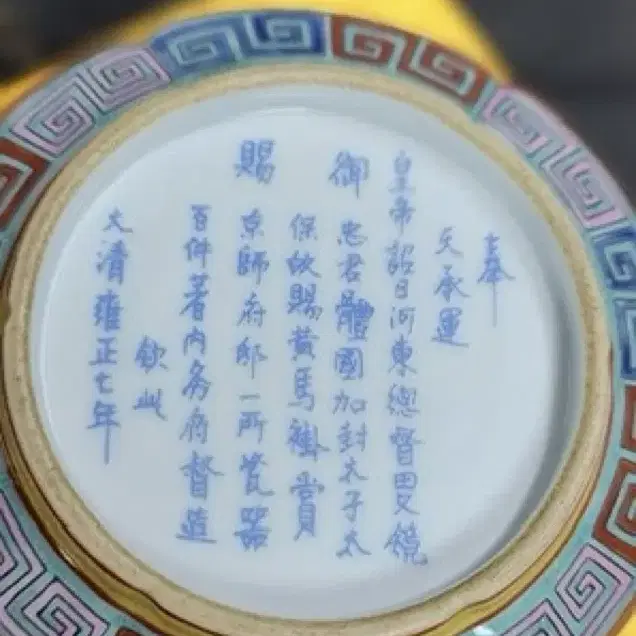 奉
天承運
皇帝詔日河東總督田文镜
御忠君體國加封太子太
保故賜黄馬褂賞
賜京師府邸一所瓷器
百件著内务府督造
钦此
大清雍正七年